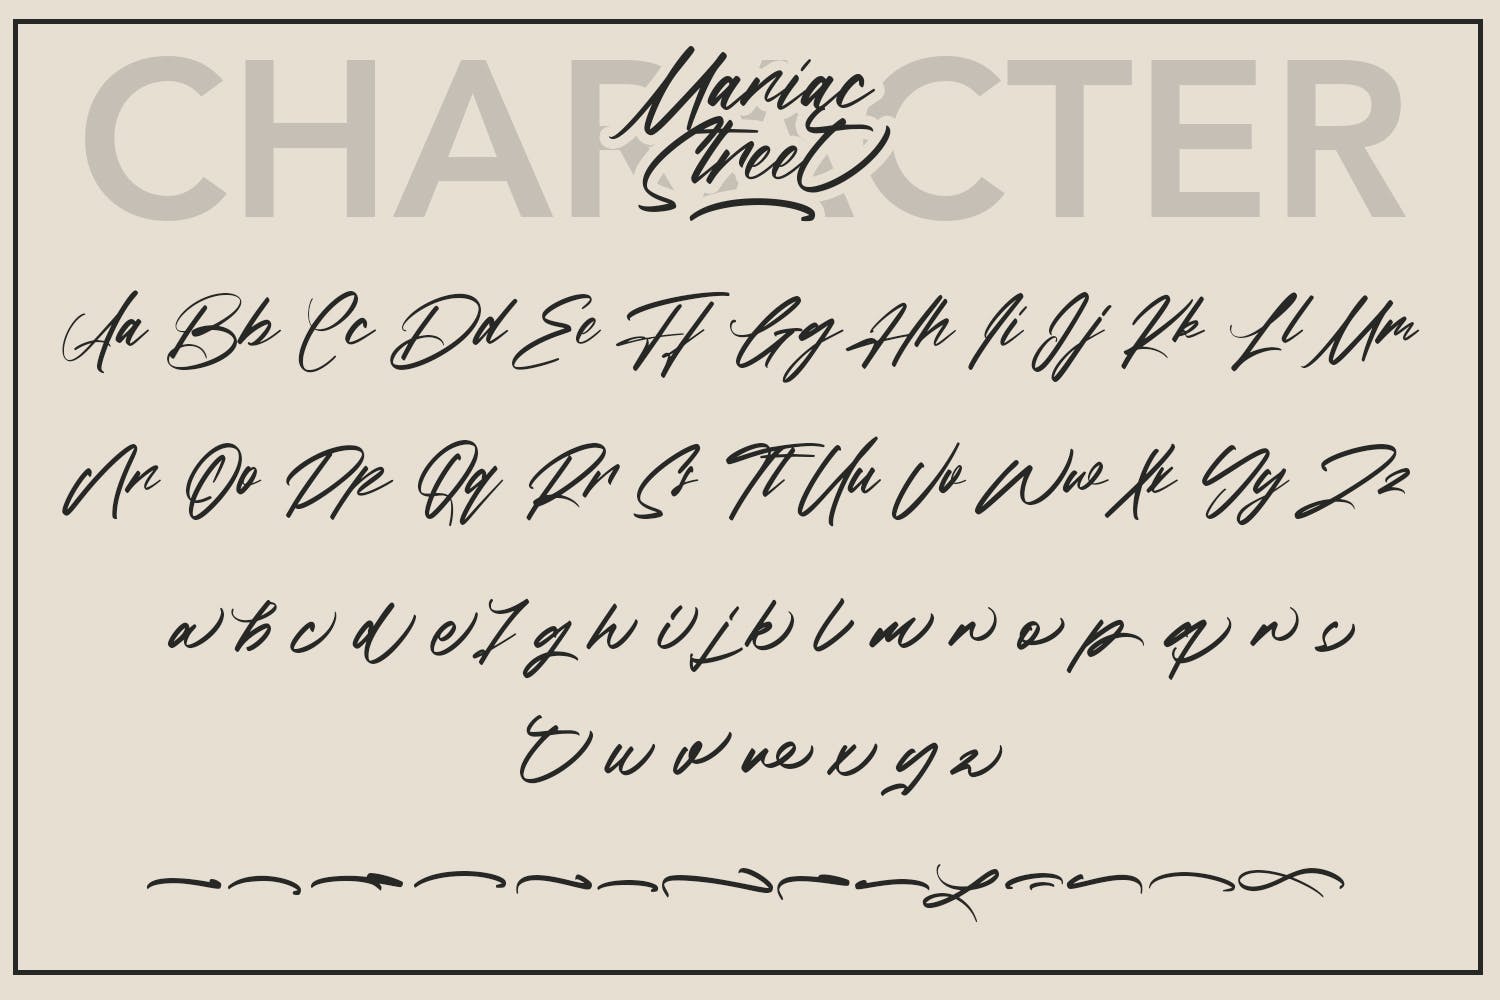 CHARACTER
Maniac
Street
Aa Bb Cc Dd Ee Ff Gg Hh Ii Jj Kk Ll Mm
Nn Oo Pp Qq Rr Ss Tt Uu Vv Ww Xx Yy Zz
a b c d e f g h i j k l m n o p q r s
t u v w x y z